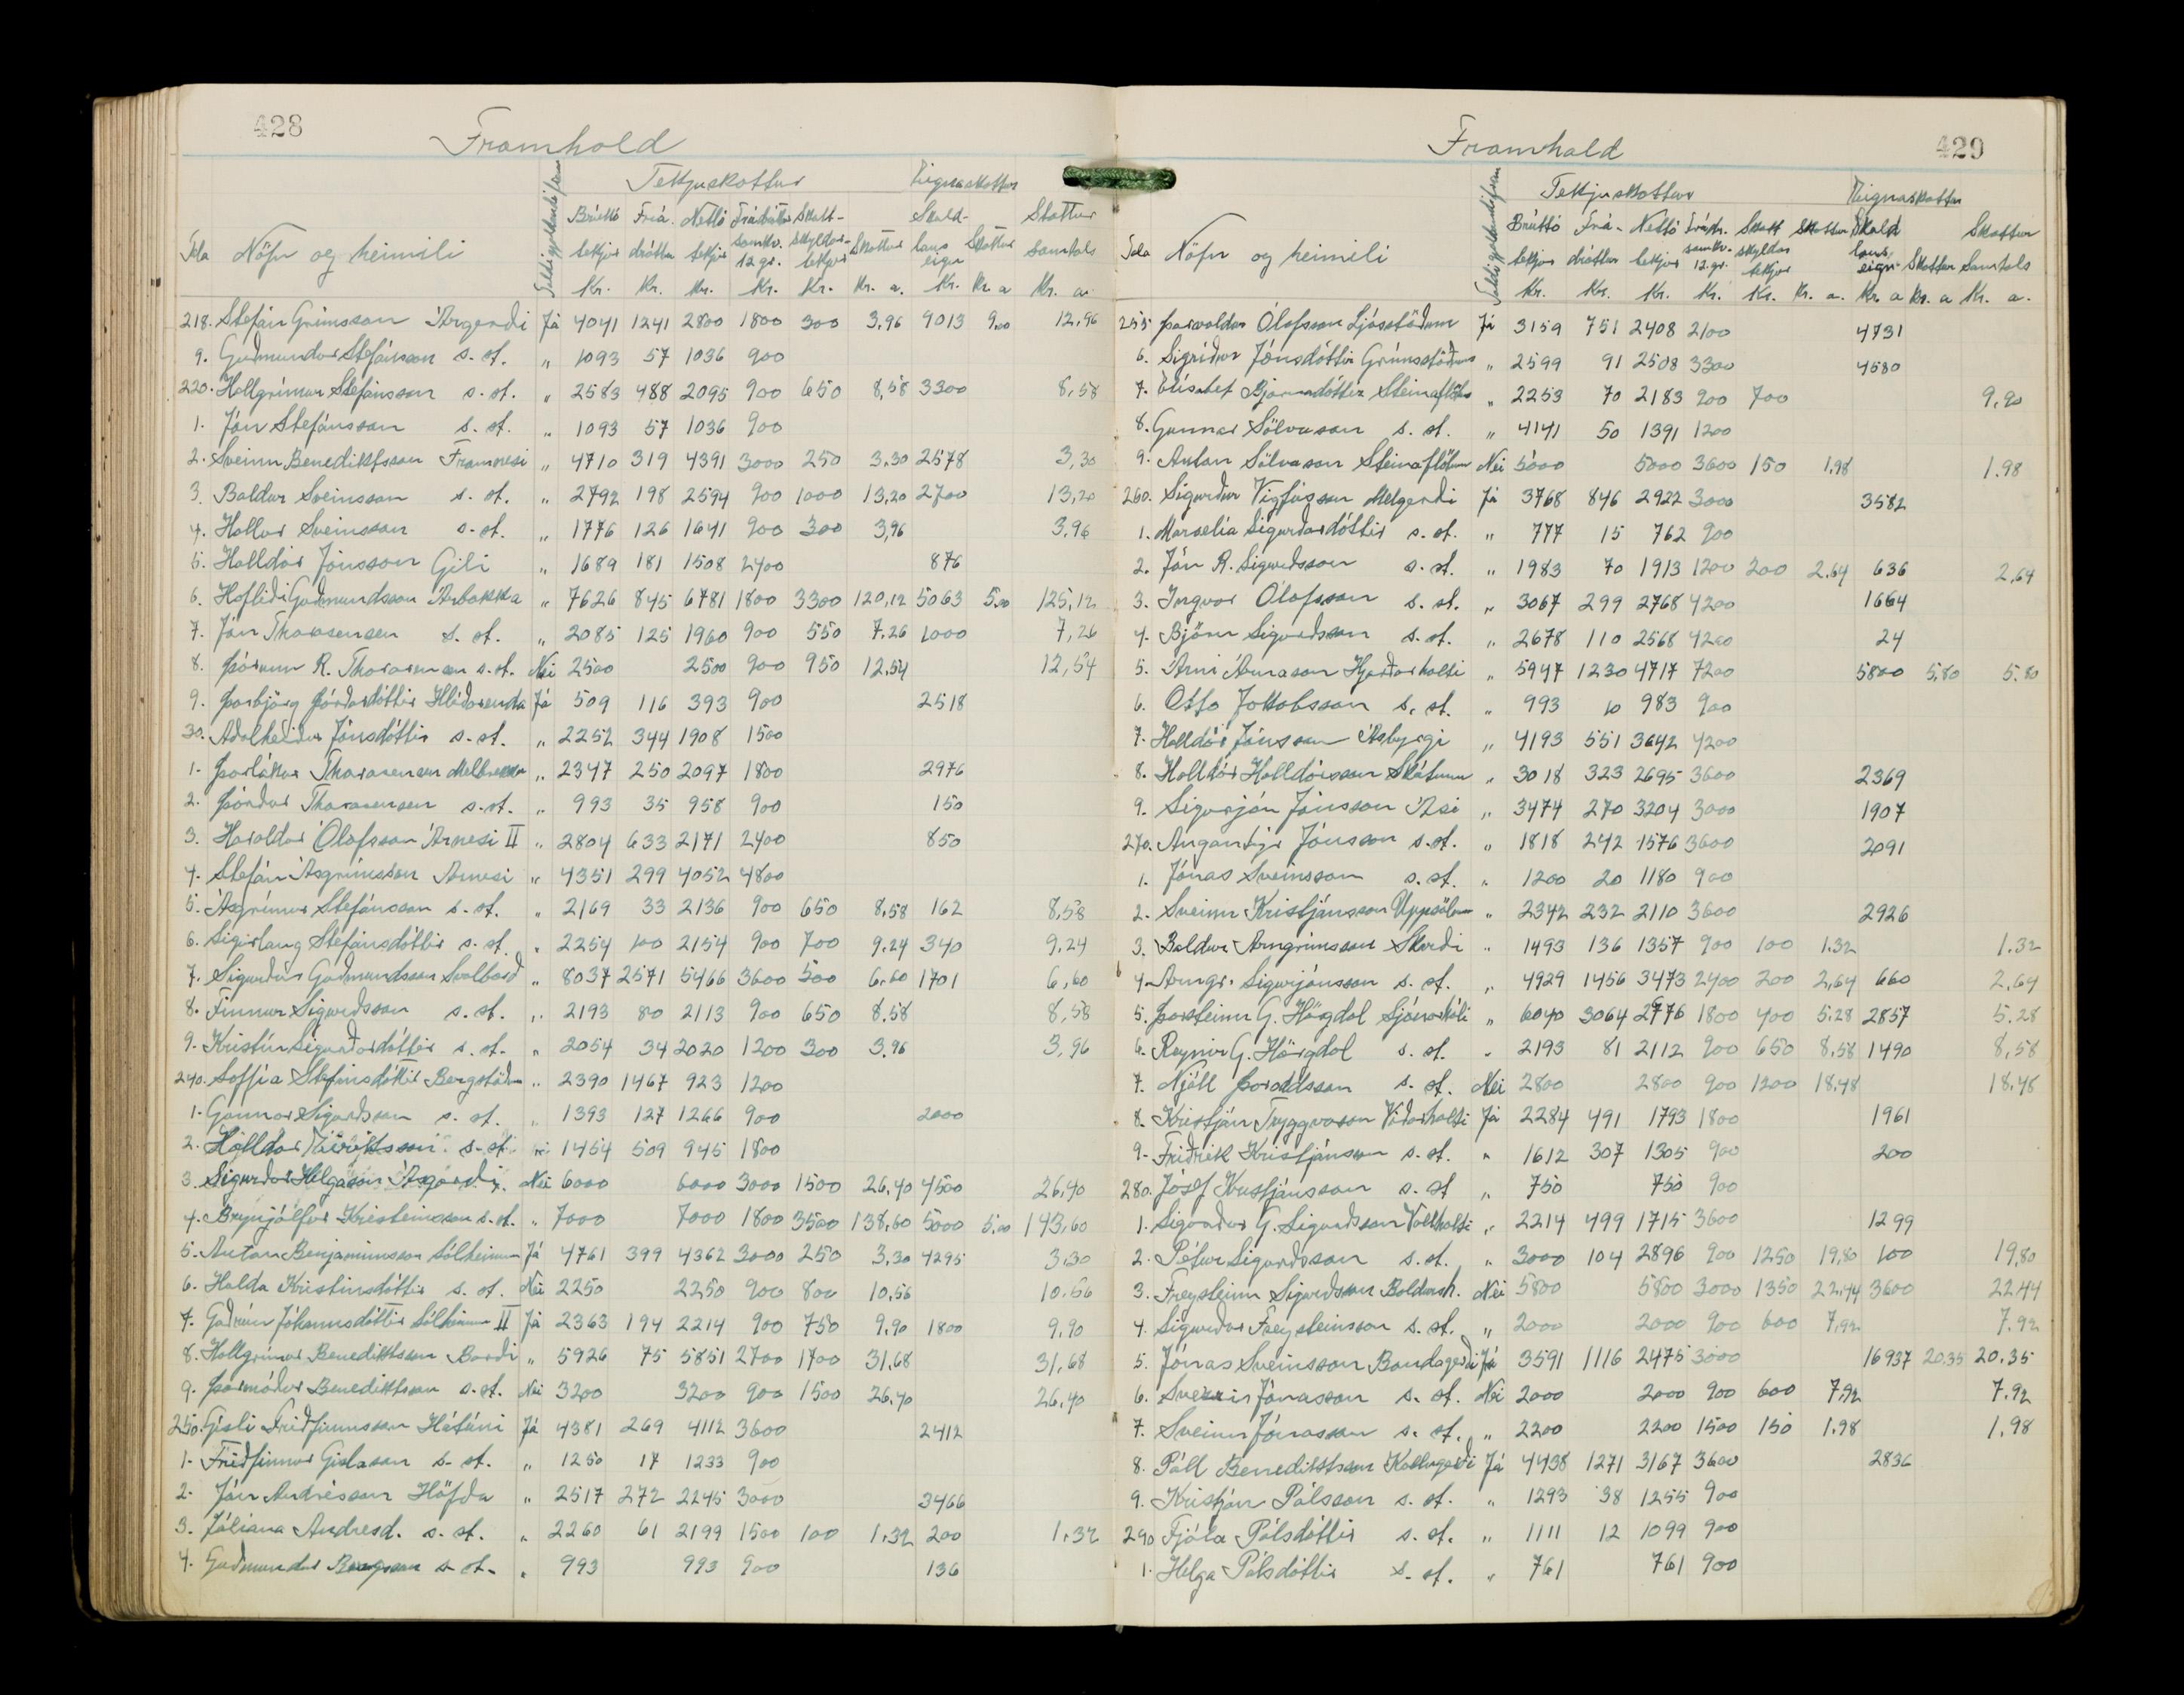 428
Framhald
Tala Nöfn og heimili Tekjuskattur Eignaskattur
Brúttó tekjur Kr. Frá-dráttur Kr. Nettó tekjur Kr. Frádráttur samkv. 12 gr. Kr. Skatt-skyldar tekjur Kr. Skattur Kr. a. Skuld-laus eign Kr. Skattur Kr. a Skattur samtals Kr. a
218. Stefán Grímsson Árgerði Já 4041 1241 2800 1800 300 3,96 9013 9,00 12,96
9. Guðmundur Stefánsson s. st. " 1093 57 1036 900
220. Hallgrímur Stefánsson s. st. " 2583 488 2095 900 650 8,58 3300 8,58
1. Jón Stefánsson s. st. " 1093 57 1036 900
2. Sveinn Benediktsson Framnesi " 4710 319 4391 3000 250 3,30 2578 3,30
3. Baldur Sveinsson s. st. " 2792 198 2594 900 1000 13,20 2700 13,20
4. Hallur Sveinsson s. st. " 1776 126 1641 900 300 3,96 3,96
5. Halldór Jónsson Gili " 1689 181 1508 2400 876
6. Hafliði Guðmundsson Árbakka " 7626 845 6781 1800 3300 120,12 5063 5,00 125,12
7. Jón Thorarensen s. st. " 2085 125 1960 900 550 7,26 1000 7,26
8. Þórunn R. Thorarensen s. st. Nei 2500 2500 900 950 12,54 12,54
9. Þorbjörg Þórðardóttir Hlíðarenda Já 509 116 393 900 2518
30. Aðalheiður Jónsdóttir s. st. " 2252 344 1908 1500
1. Þorlákur Thorarensen Melbrekku " 2347 250 2097 1800 2976
2. Þórður Thorarensen s. st. " 993 35 958 900 150
3. Haraldur Ólafsson Árnesi II " 2804 633 2171 2400 850
4. Stefán Ásgrímsson Árnesi " 4351 299 4052 4800
5. Ásgrímur Stefánsson s. st. " 2169 33 2136 900 650 8,58 162 8,58
6. Sigurlaug Stefánsdóttir s. st. " 2254 100 2154 900 700 9,24 340 9,24
7. Sigurður Guðmundsson Svalbarð " 8037 2571 5466 3600 500 6,60 1701 6,60
8. Finnur Sigurðsson s. st. " 2193 80 2113 900 650 8,58 8,58
9. Kristín Sigurðardóttir s. st. " 2054 34 2020 1200 300 3,96 3,96
240. Soffía Stefánsdóttir Bergstöðum " 2390 1467 923 1200
1. Gunnar Sigurðsson s. st. " 1393 127 1266 900 2000
2. Halldór s. st. 1454 509 945 1800
3. Sigurður Helgason Ásgarði Nei 6000 6000 3000 1500 26,40 4500 26,40
4. Brynjólfur Kristinsson s. st. " 7000 7000 1800 3500 138,60 5000 5,00 143,60
5. Anton Benjamínsson Sólheimum Já 4761 399 4362 3000 250 3,30 4295 3,30
6. Halda Kristinsdóttir s. st. Nei 2250 2250 900 800 10,56 10,56
7. Guðrún Jóhannsdóttir Sólheimum II Já 2363 194 2214 900 750 9,90 1800 9,90
8. Hallgrímur Benediktsson Barði " 5926 75 5851 2700 1700 31,68 31,68
9. Þormóður Benediktsson s. st. Nei 3200 3200 900 1500 26,40 26,40
250. Gísli Friðfinnsson Hátúni Já 4381 269 4112 3600 2412
1. Friðfinnur Gíslason s. st. " 1250 17 1233 900
2. Jón Andrésson Höfða " 2517 272 2245 3000 3466
3. Júlíana Andresd. s. st. " 2260 61 2199 1500 100 1,32 200 1,32
4. Guðmundur s. st. " 993 993 900 136
429
Framhald
Tala Nöfn og heimili Tekjuskattur Eignaskattur
Brúttó tekjur Kr. Frá-dráttur Kr. Nettó tekjur Kr. Frádr. samkv. 12. gr. Kr. Skatt skyldar tekjur Kr. Skattur Kr. a. Skuld laus eign Kr. a Skattur Kr. a Skattur Samtals Kr. a.
255 Þorvaldur Ólafsson Ljósstöðum Já 3159 751 2408 2100 4731
6. Sigríður Jónsdóttir Grímsstöðum " 2599 91 2508 3300 4580
7. Elísabet Bjarnadóttir Steinaflötum " 2253 70 2183 900 700 9,90
8. Gunnar Sölvason s. st. " 4141 50 1391 1200
9. Anton Sölvason Steinaflötum Nei 5000 5000 3600 150 1,98 1.98
260. Sigurður Vigfússon Melgerði Já 3768 846 2922 3000 3582
1. Marselía Sigurðardóttir s. st. " 777 15 762 900
2. Jón R. Sigurðsson s. st. " 1983 70 1913 1200 200 2.64 636 2,64
3. Ingvar Ólafsson s. st. " 3067 299 2768 4200 1664
4. Björn Sigurðsson s. st. " 2678 110 2568 4200 24
5. Árni Árnason Hjarðarholti " 5947 1230 4717 7200 5800 5,80 5.80
6. Ottó Jakobsson s. st. " 993 10 983 900
7. Halldór Jónsson Ásbyrgi " 4193 551 3642 4200
8. Halldór Halldórsson Skálum " 3018 323 2695 3600 2369
9. Sigurjón Jónsson Ási " 3474 270 3204 3000 1907
270. Angantýr Jónsson s. st. " 1818 242 1576 3600 2091
1. Jónas Sveinsson s. st. " 1200 20 1180 900
2. Sveinn Kristjánsson Uppsölum " 2342 232 2110 3600 2926
3. Baldur Arngrímsson Skarði " 1493 136 1357 900 100 1.32 1.32
4. Arngr. Sigurjónsson s. st. " 4929 1456 3473 2400 200 2,64 660 2,64
5. Þorsteinn G. Hörgdal Sjónarhóli " 6040 3064 2976 1800 400 5.28 2857 5.28
6. Reynir G. Hörgdal s. st. " 2193 81 2112 900 650 8,58 1490 8,58
7. Njáll Þoroddsson s. st. Nei 2800 2800 900 1200 18,48 18,48
8. Kristján Tryggvason Viðarholti Já 2284 491 1793 1800 1961
9. Friðrik Kristjánsson s. st. " 1612 307 1305 900 200
280. Jósef Kristjánsson s. st " 750 750 900
1. Sigurður G. Sigurðsson Vallholti " 2214 499 1715 3600 1299
2. Pétur Sigurðsson s. st. " 3000 104 2896 900 1250 19,80 100 19,80
3. Freysteinn Sigurðsson Baldursh. Nei 5800 5800 3000 1350 22,44 3600 22,44
4. Sigurður Freysteinsson s. st. " 2000 2000 900 600 7,92 7.92
5. Jónas Sveinsson Bandagerði Já 3591 1116 2475 3000 16937 20.35 20.35
6. Sverrir Jónasson s. st. Nei 2000 2000 900 600 7,92 7.92
7. Sveinn Jónasson s. st. " 2200 2200 1500 150 1.98 1.98
8. Páll Benediktsson Kollugerði Já 4438 1271 3167 3600 2836
9. Kristján Pálsson s. st. " 1293 38 1255 900
290 Fjóla Pálsdóttir s. st. " 1111 12 1099 900
1. Helga Pálsdóttir s. st. " 761 761 900